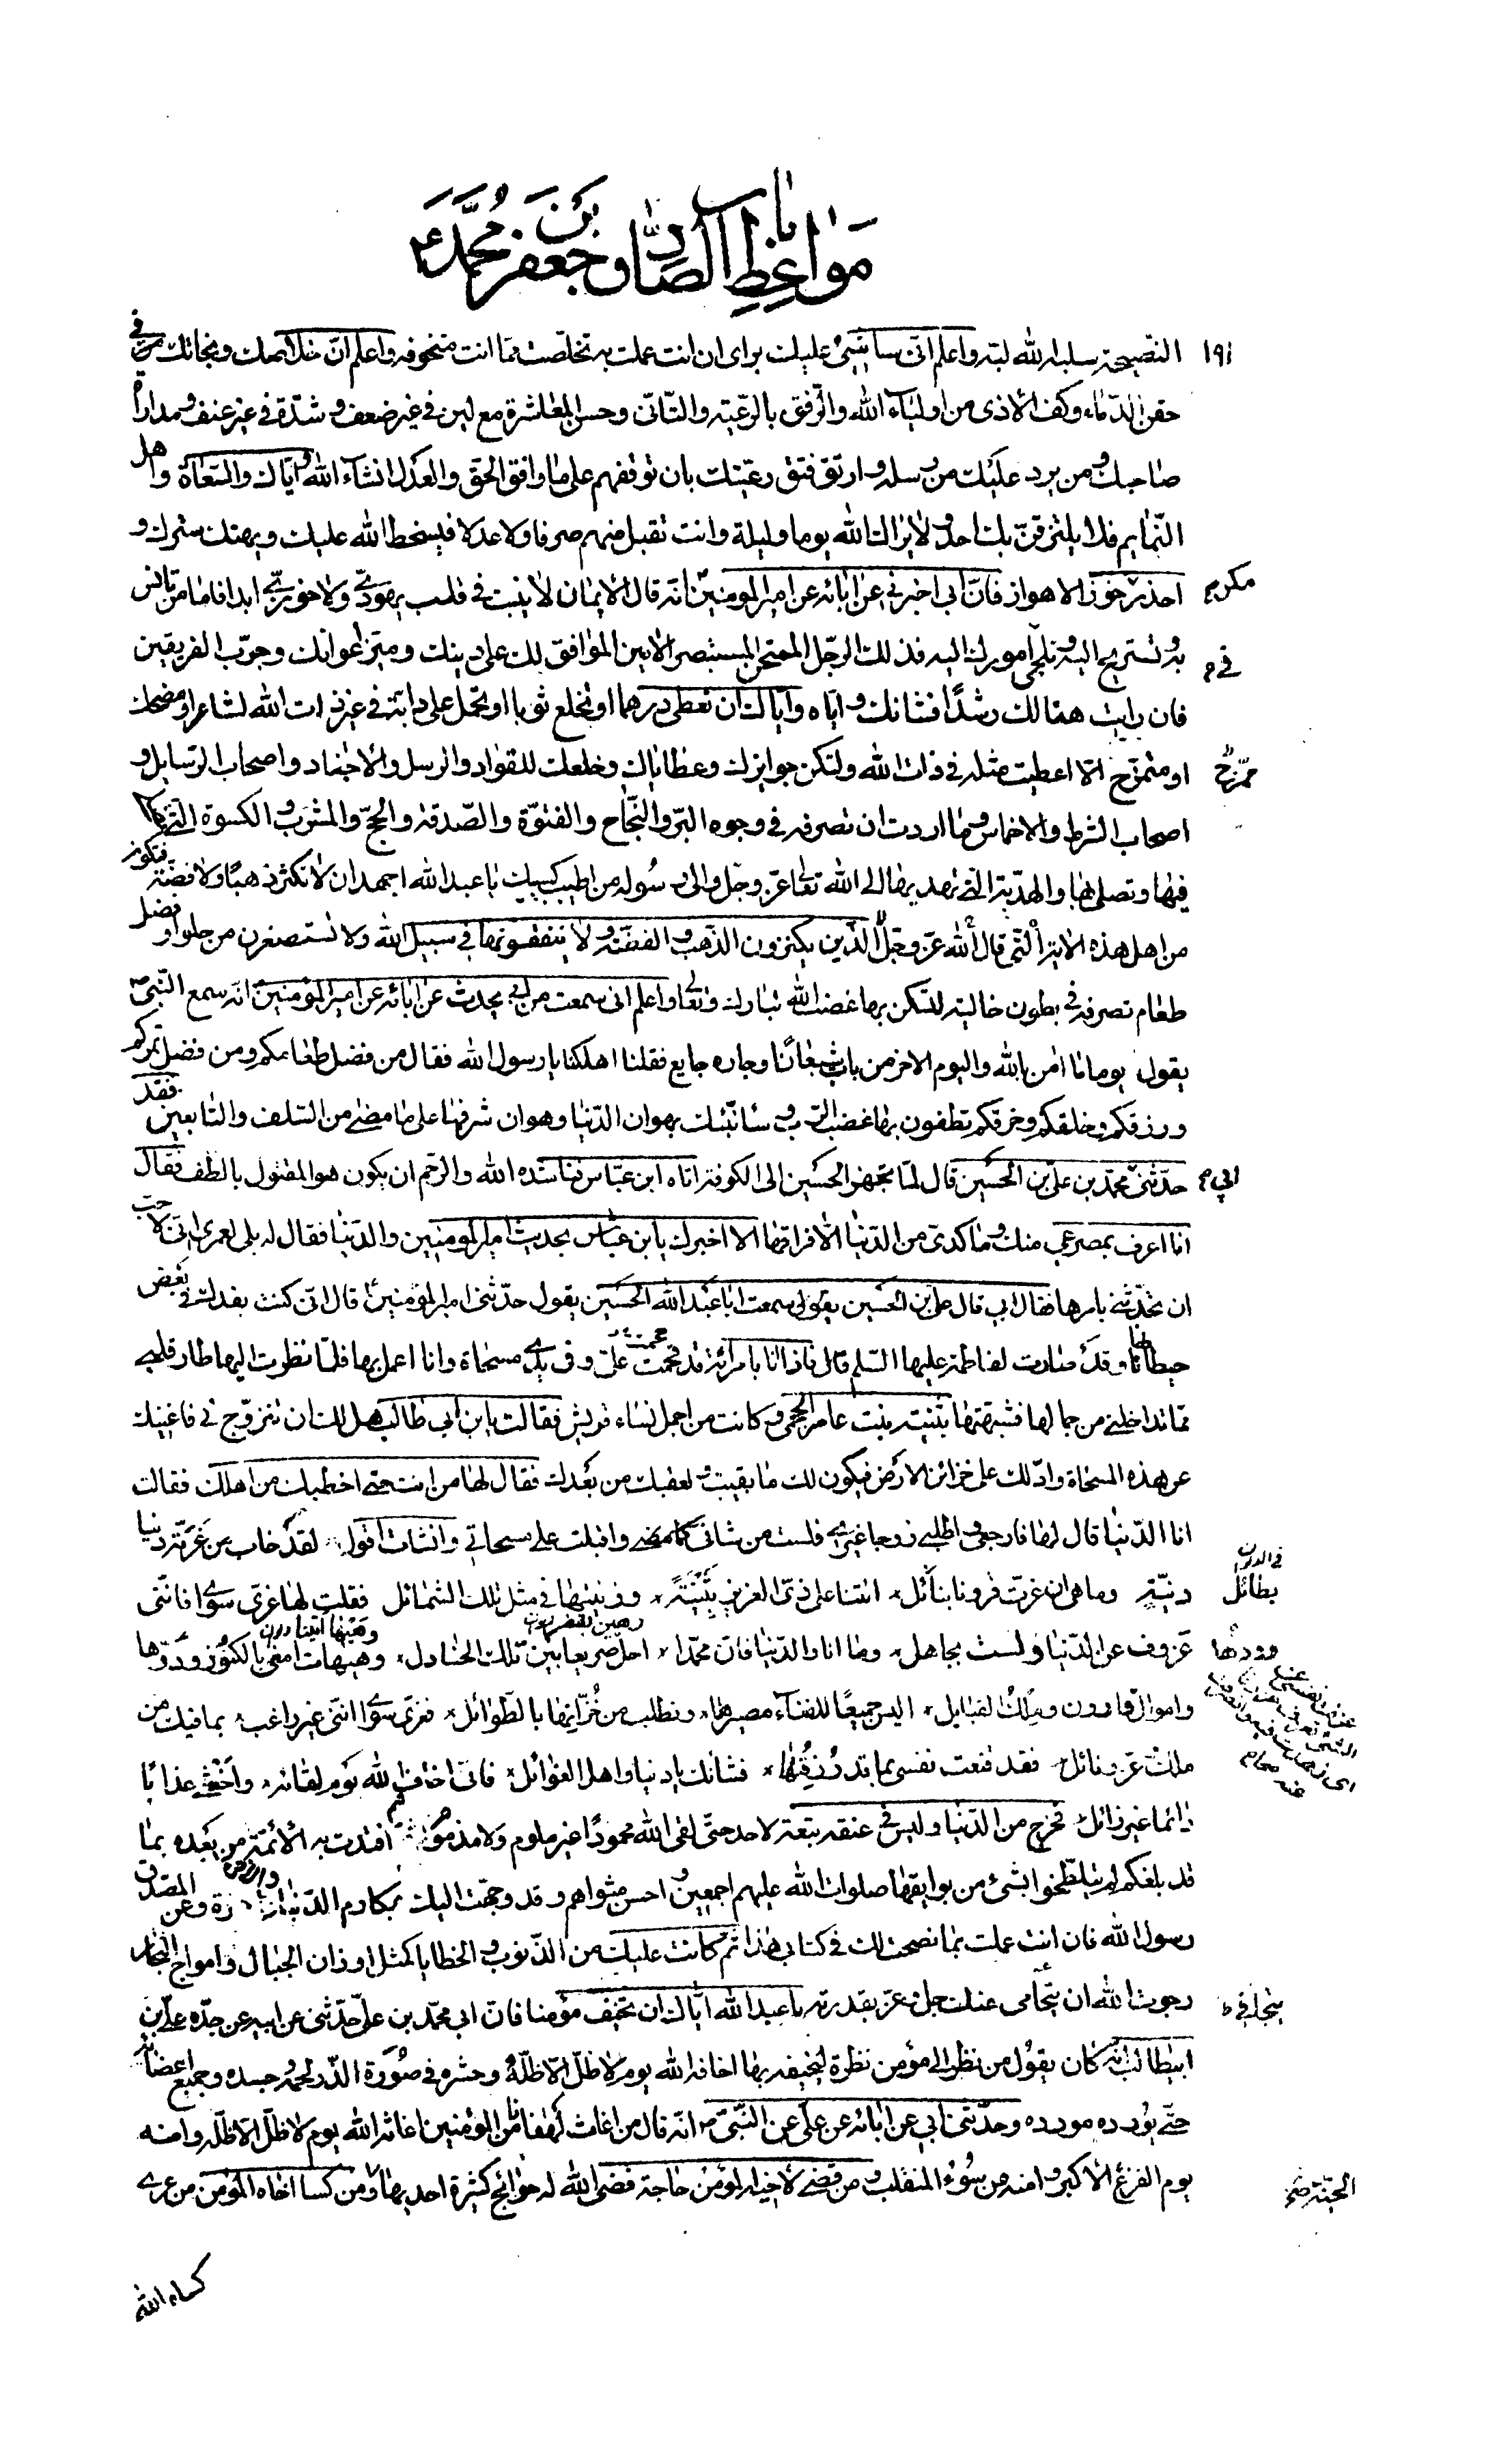 باب
مَوٰاعِظِ الصّٰادِق جَعفر بنَ مُحَمَّد ع
١٩١ النّصيحة سلبه الله لبّه واعلم انّى ساشير عليك براى ان انت عملت به تخلّصت ممّا انت متخوفه واعلم انّ خلاصك ونجاتك من فى
حقن الدّماء وكف الاذى من اولياء الله والرّفق بالرعيّة والتّانّى وحسن المعاشرة مع لين فى غير ضعف وشدّة فى غير عنف ومداراة
صاحبك ومن يرد عليك من رسله وارتق فتق رعيّتك بان توقفهم على ما وافق الحقّ والعدل انشاء الله وايّاك والسّعاة واهل
النّمايم فلا يلتزقنّ بك احد ولا يراك الله يوما وليلة وانت تقبل منهم صرفا ولا عدلا فيسخط الله عليك ويهتك سترك و
احذر خوز الاهواز فانّ ابى اخبرنى عن ابائه عن امير المؤمنين انّه قال الايمان لا يثبت فى قلب يهودىّ ولا خوزىّ ابدا فاما من تانس
مكر م
به وتستريح اليه وتلجئ امورك اليه فذلك الرّجل الممتحن المستبصر الامين الموافق لك على دينك وميّز اعوانك وجرّب الفريقين
فى م
فان رايت هنالك رشدًا فشانك وايّاه وايّاك ان تعطى درهما او تخلع ثوبا او تحمل على دابّة فى غير ذات الله لشاعر او مضحك
او متمزّح الّا اعطيت مثله فى ذات الله ولتكن جوايزك وعطاياك وخلعك للقوّاد والرسل والاجناد واصحاب الرّسايل و
اصحاب الشرط والاخماس وما اردت ان تصرفه فى وجوه البرّ والنّجاح والفتوّة والصّدقة والحجّ والمشرب والكسوة التى
فيها وتصلى بها والهديّة الّتى تهديها الى الله تعالى عزّ وجلّ والى رسوله من اطيب كسبك يا عبد الله اجهد ان لا تكنز ذهبًا ولا فضّة فتكون
من اهل هذه الاية الّتى قال الله عزّ وجلّ الّذين يكنزون الذّهب والفضّة ولا ينفقونها فى سبيل الله ولا تستصغرن من حلو او فضل
طعام تصرفه فى بطون خالية لتسكن بها غضب الله تبارك وتعالى واعلم انى سمعت من ابى يحدث عن ابائه عن امير المؤمنين انّه سمع النّبى ص
يقول يوما ما امن بالله واليوم الاخر من بات شبعانًا وجاره جايع فقلنا اهلكنا يا رسول الله فقال من فضل طعامكم ومن فضل تمركم
ورزقكم وخلقكم وخرقكم تطفون بها غضب الربّ وسانبّئك بهوان الدّنيا وهوان شرفها على ما مضى من السّلف والتابعين فقد
حدّثنى محمّد بن علىّ بن الحسين قال لمّا تجهّز الحسين الى الكوفة اتاه ابن عبّاس فناشده الله والرّحم ان يكون هو المقتول بالطّف فقال
ابى م
انا اعرف بمصرعى منك وما كدى من الدّنيا الّا فراقها الا اخبرك يابن عباس بحديث امير المؤمنين والدّنيا فقال له بلى لعمرى انّى لاحبّ
ان تحدّثنى بامرها فقال ابى قال علىّ بن الحسين يقول سمعت ابا عبد الله الحسين يقول حدّثنى امير المؤمنين قال انّى كنت بفدك فى بعض
حيطانها وقد صارت لفاطمة عليها السّلم قال فاذا انا بامرأة قد قحمت علىّ وفى يدى مسحاة وانا اعمل بها فلمّا نظرت اليها طار قلبى
ممّا تداخلنى من جمالها فشبّهتها ببثينة بنت عامر الجمحى وكانت من اجمل نساء قريش فقالت يابن ابى طالب هل لك ان تتزوّج بى فاغنيك
عن هذه المسحاة وادّلك على خزائن الارض فيكون لك ما بقيت ولعقبك من بعدك فقال لها من انت حتى اخطبك من اهلك فقالت
انا الدّنيا قال لها فارجعى واطلبى زوجا غيرى فلست من شانى كما مضى واقبلت على مسحاتى وانشات اقول لقد خاب من غرّته دنيا
دنيّة وما هى ان غرّت قرونا بنائل اتتنا على زىّ العزيز بثينة وزينتها فى مثل تلك الشمائل فقلت لها غرّى سوٰى فانّنى
بطائل
عزوف عن الدّنيا ولست بجاهل وما انا والدّنيا فانّ محمّدا احلّ صريعا بين تلك الجنادل وهيهات امنى بالكنوز وودّها
وودرها
واموال قارون وملك القبايل اليس جميعًا للفناء مصيرها ونطلب من خُزّانها بالطّوائل فغرّى سوٰى انّنى غير راغب بما فيك من
ملك وعزّ ونائل فقد قنعت نفسى بما قد رُزقته فشانك يا دنيا واهل الغوائل فانّى اخاف الله يوم لقائه واخشى عذابًا
دائما غير زائل فخرج من الدّنيا وليس فى عنقه تبعة لاحد حتّى لقى الله محمودًا غير ملوم ولا مذموم ثمّ اقتدت به الائمّة من بعده بما
قد بلغكم لم يتلطّخوا بشئ من بوايقها صلوات الله عليهم اجمعين واحسن مثواهم وقد وجّهت اليك بمكارم الدّنيا والاخرة وعن الصّادق المصدّق
رسول الله فان انت عملت بما نصحت لك فى كتابى هذا ثمّ كانت عليك من الذّنوب والخطايا كمثل اوزان الجبال وامواج البحار
رجوت الله ان يتحامى عنك جلّ وعزّ بقدرته يا عبد الله ايّاك ان تخيف مؤمنا فانّ ابى محمّد بن علىّ حدّثنى عن ابيه عن جدّه على بن
يتجافى
ابيطالب انّه كان يقول من نظر الى مؤمن نظرة ليخيفه بها اخافه الله يوم لا ظلّ الّا ظلّه وحشره فى صورة الذّر لحمه وجسده وجميع اعضائه
حتّى يورده مورده وحدّثنى ابى عن ابائه عن علىّ عن النّبىّ ص انّه قال من اغاث لهفانا من المؤمنين اغاثه الله يوم لا ظلّ الّا ظلّه وامنه
يوم الفزع الاكبر وامنه من سوء المنقلب ومن قضى لاخيه المؤمن حاجة قضى الله له حوائج كثيرة احديها الجنّة ومن كسا اخاه المؤمن من عرى
كساه الله